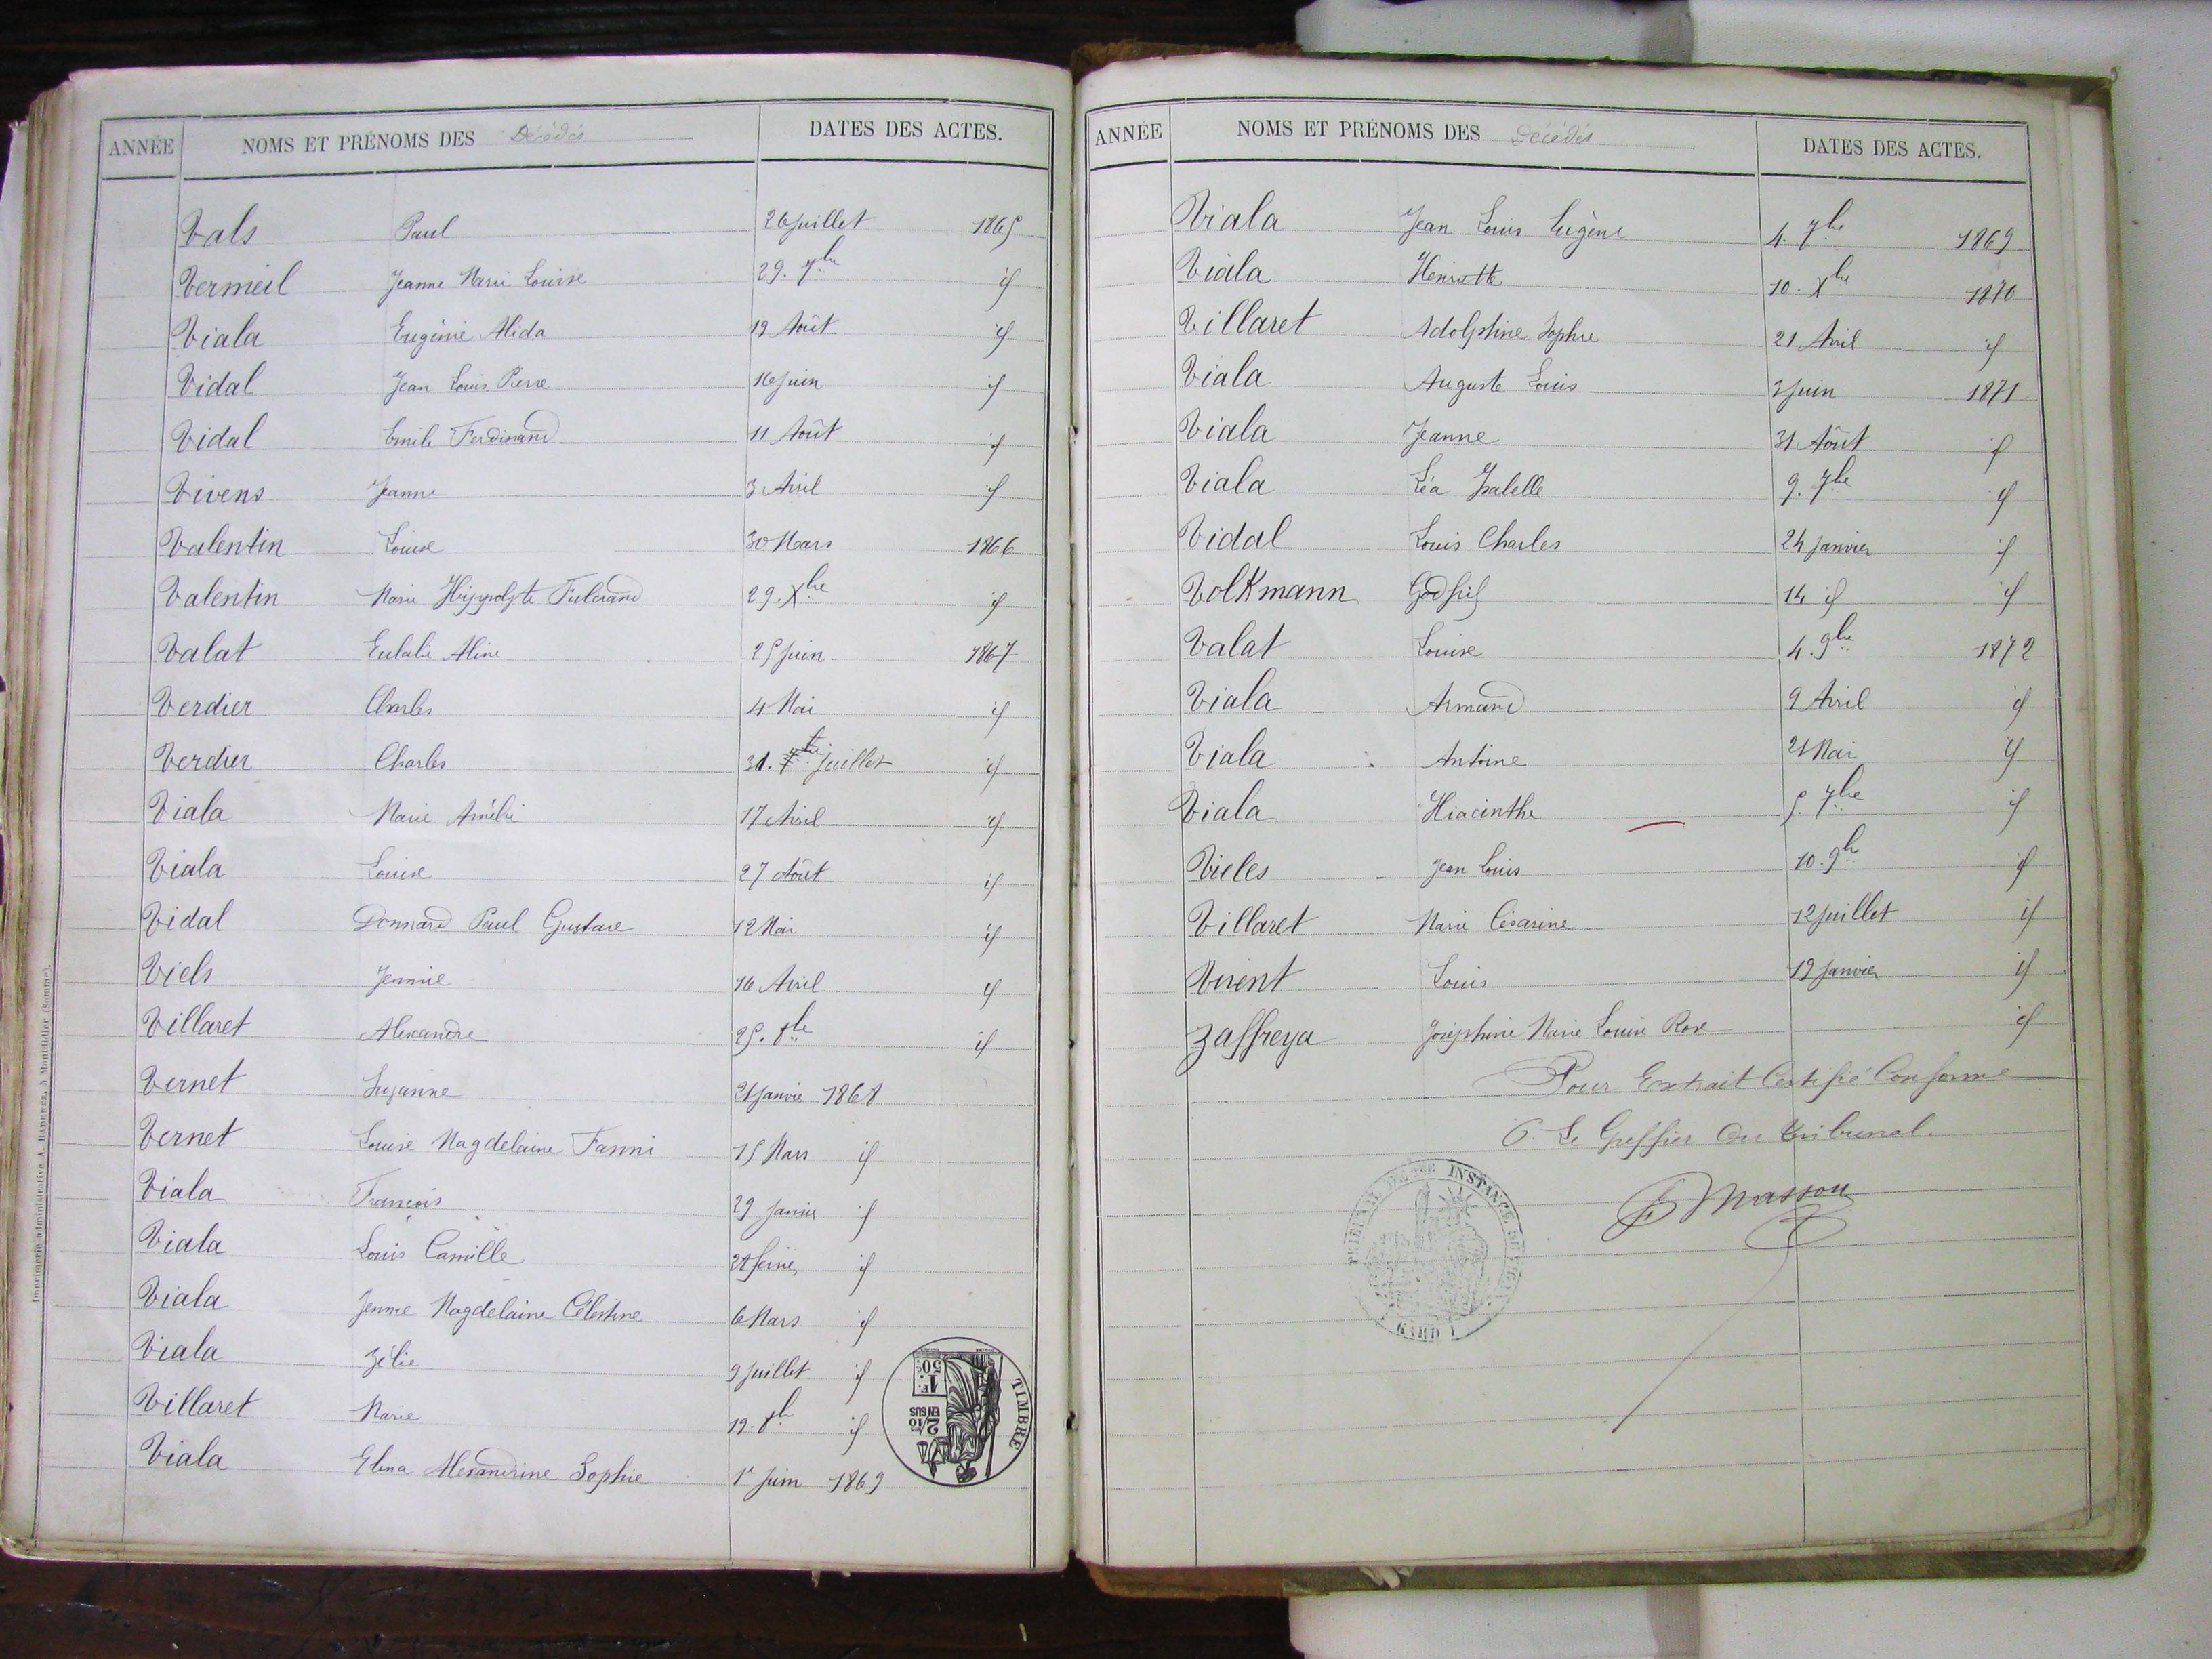 ANNÉE NOMS ET PRÉNOMS DES Décédés DATES DES ACTES.
Vals Paul 26 Juillet 1865
Vermeil Jeanne Marie Louise 29. 7bre id
Viala Eugénie Alida 19 Août id
Vidal Jean Louis Pierre 16 Juin id
Vidal Emile Ferdinand 11 Août id
Vivens Jeanne 3 Avril id
Valentin Louise 30 Mars 1866
Valentin Marie Hippolyte Fulcrand 29. Xbre id
Valat Eulalie Aline 25 Juin 1867
Verdier Charles 4 Mai id
Verdier Charles 31. Juillet id
Viala Marie Amélie 17 Avril id
Viala Louise 27 Août id
Vidal Paul Gustave 12 Mai id
Viels Jennie 16 Avril id
Villaret Alexandre 25. 8bre id
Vernet Suzanne 21 Janvier 1868
Vernet Louise Magdelaine Fanni 15 Mars id
Viala Francois 29 Janvier id
Viala Louis Camille id
Viala Magdelaine Célestine 6 Mars id
Viala Zélie 9 Juillet id
Villaret Marie 19. 8bre id
Viala Elina Alexandrine Sophie 1r Juin 1869
TIMBRE
1F. 50c.
2/10 EN SUS
Imprimerie administrative A. Radenez, à Montdidier (Somme).
ANNÉE NOMS ET PRÉNOMS DES Décédés DATES DES ACTES.
Viala Jean Louis Eugène 4. 7bre 1869
Viala Henriette 10. Xbre 1870
Villaret Adolphine Sophie 21 Avril id
Viala Auguste Louis 3 Juin 1871
Viala Jeanne 31 Août id
Viala Léa Isabelle 9. 7bre id
Vidal Louis Charles 24 Janvier id
Volkmann 14 id id
Valat Louise 4. 9bre 1872
Viala Armand 9 Avril id
Viala Antoine 21 Mai id
Viala Hiacinthe 5. 7bre id
Vieles Jean Louis 10. 9bre id
Villaret Marie Césarine 12 Juillet id
Louis 19 Janvier id
Zaffreya Joséphine Marie Louise Rose id
Pour Extrait Certifié Conforme
Le Greffier du tribunal.
Masson
TRIBUNAL DE 1ERE INSTANCE
GARD